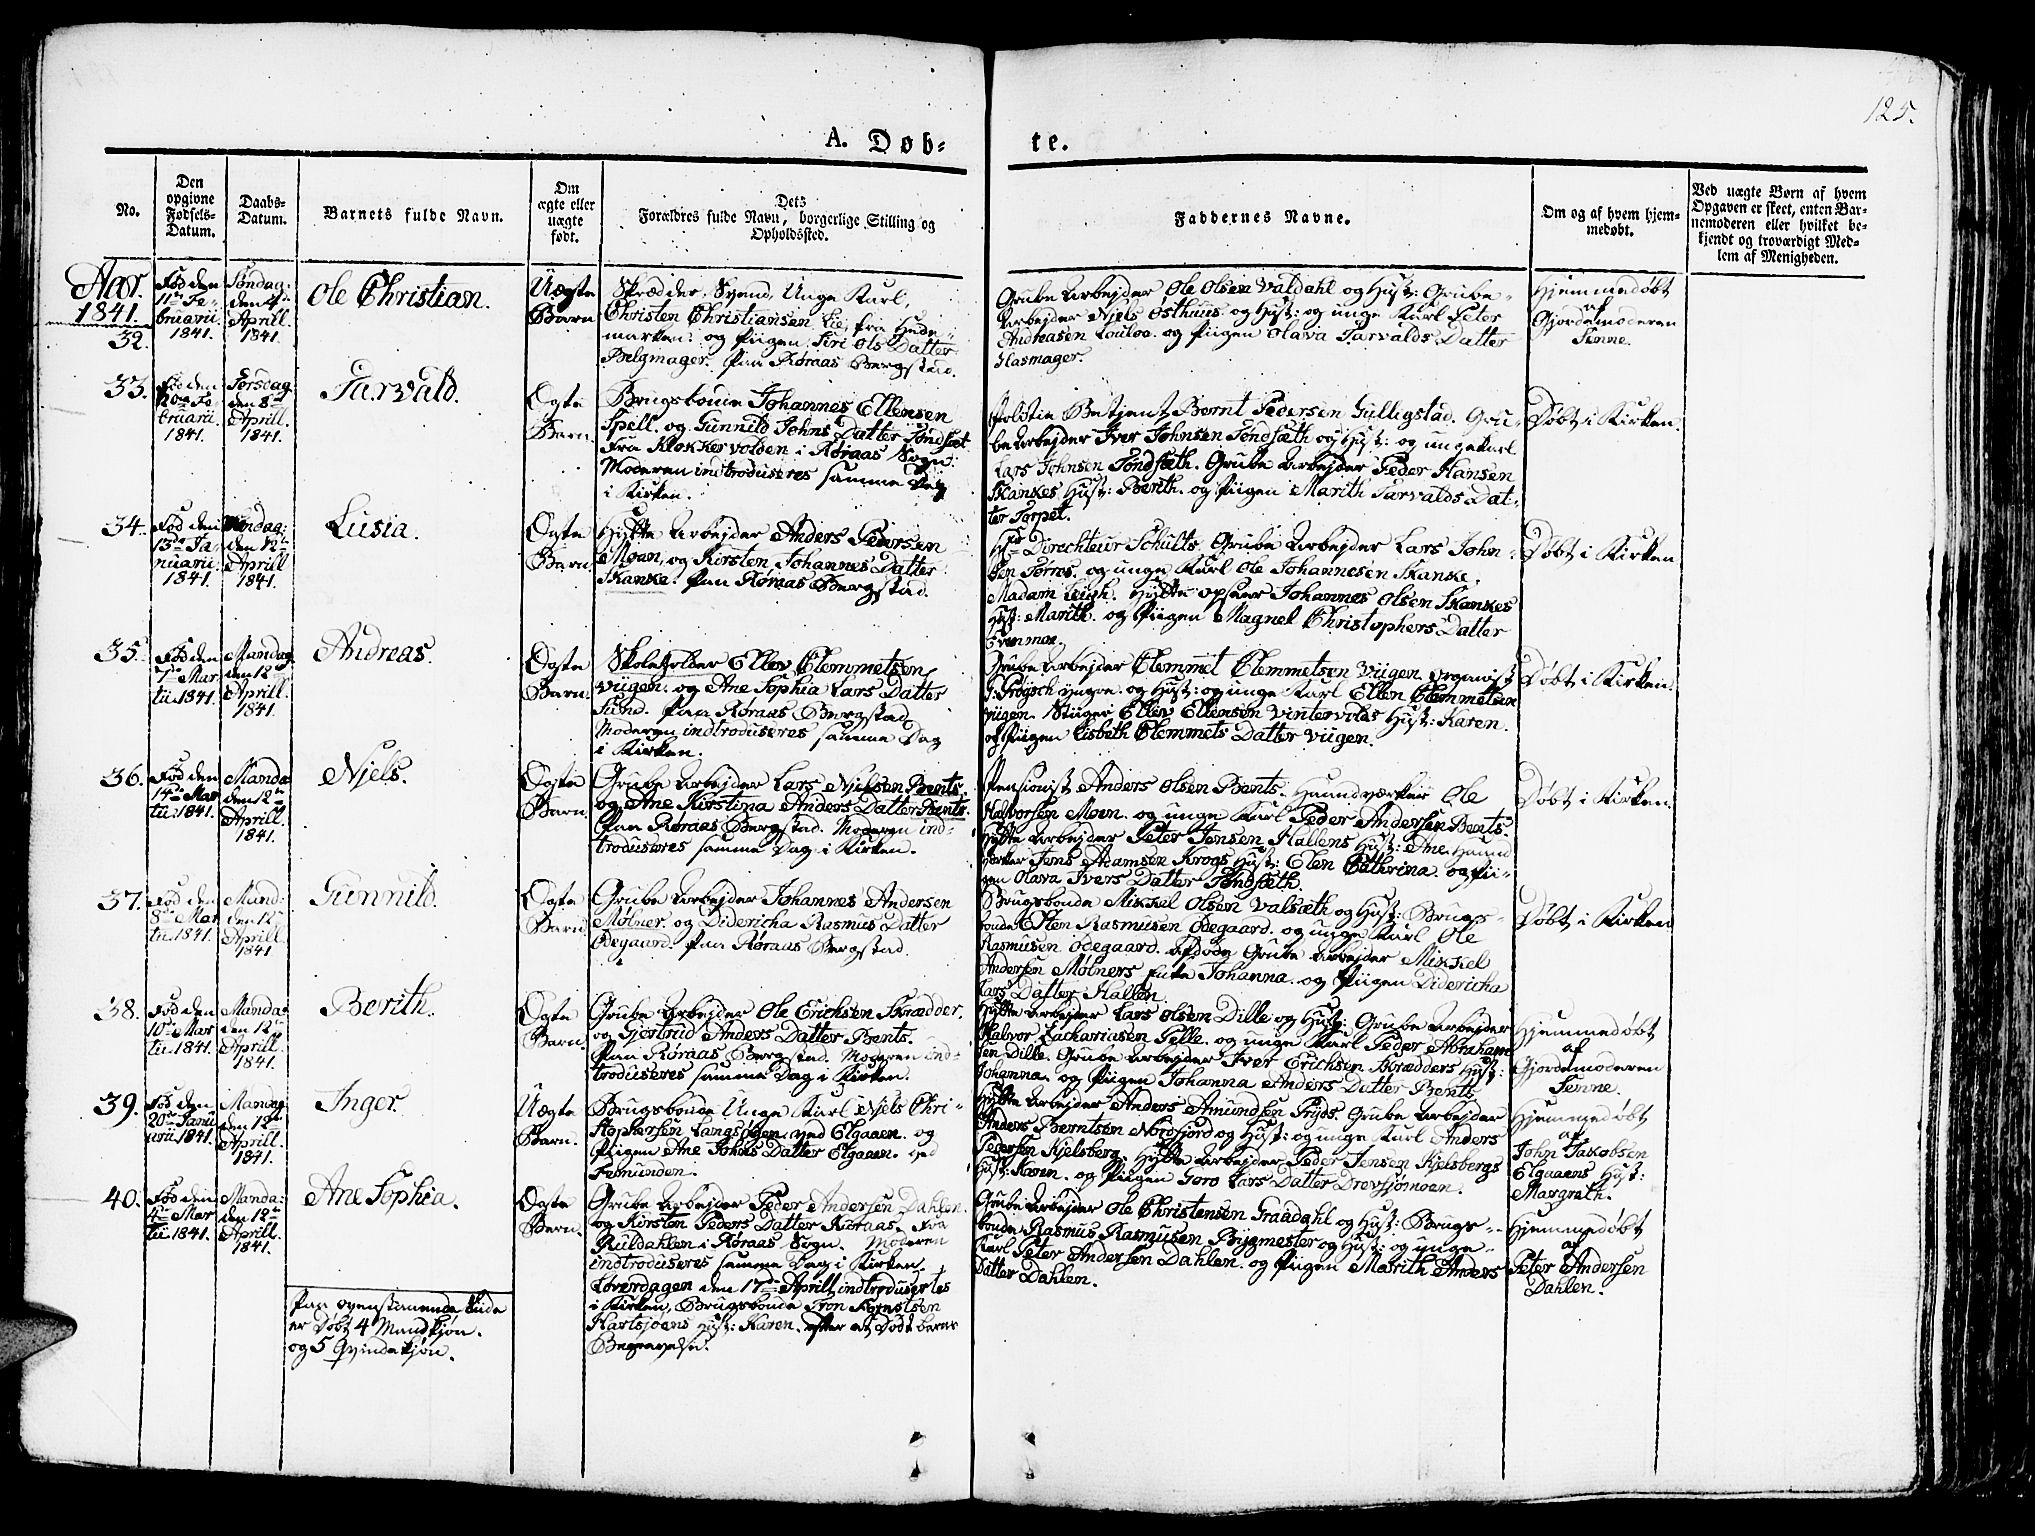 125.
A. Døb-
te.
No.
Den opgivne Fødsels-Datum.
Daabs-Datum.
Barnets fulde Navn.
Om ægte eller uægte født.
Dets Forældres fulde Navn, borgerlige Stilling og Opholdssted.
Faddernes Navne.
Om og af hvem hjem-medøbt.
Ved uægte Børn af hvem
Opgaven er skeet, enten Bar-
nemoderen eller hvilket be-
kjendt og troværdigt Med-
lem af Menigheden.
Aar.
1841.
32.
Fød den
11te Fe-
bruarii
1841.
Søndag:
den 4de
Aprill.
1841.
Ole Christian.
Uægte
Barn
Skrædder. Svend, Unge Karl,
Christen Christiansen Lie, fra Hede-
marken: og Piigen Siri Ols Datter
Belgmager. Paa Røraas Bergstad.
Grube Arbejder Ole Olsen Valdahl og Hust: Grube-
Arbejder Njels Østhuus. og Hust: og unge Karl Peter
Andreasen Louloe. og Piigen Olava Tarvalds Datter
Hasmager.
Hjemmedøbt
af
Gjordemoderen
Sinne.
33.
Fød den
20de Fe
bruarii
1841.
Torsdag
den 8de
Aprill.
1841.
Tarvald.
Ægte
Barn.
Brugsbonde Johannes Ellensen
Spell. og Gunnild Johns Datter Tøndsæt
fra Klokkervolden i Røraas Sogn:
Moderen indtroduseres samme Dag
i Kirken.
Politie Betjent Bernt Pedersen Gulligstad. Gru-
be Arbejder Iver Johnsen Tøndsæth og Hust: og unge Karl
Lars Johnsen Tøndsæth. Grube Arbejder Peder Hansen
Skankes Hust: Berith. og Piigen Marith Tarvalds Dat-
ter Torpet.
Døbt i Kirken.
34.
Fød den
13de Ja-
nuarii
1841.
Mandag:
den 12te
Aprill
1841.
Lusia.
Ægte
Barn
Hytte Arbejder Anders Peersen
Moan, og Kirsten Johannes Datter
Skanke. Paa Røraas Bergstad.
Hr. Direchteur Schults. Grube Arbejder Lars John-
sen Torres. og unge Karl Ole Johannesen Skanke,
Madam Leigh. Hytte opseer Johannes Olsen Skankes
Hust: Marith. og Piigen Magnel Christophers Datter
Evenmoe.
Døbt i Kirken
35.
Fød den
7de Mar
tii. 1841.
Mandag
den 12te
Aprill.
1841.
Andreas.
Ægte
Barn.
Skoleholder Ellev Clemmetsen
Viigen. og Ane Sophia Lars Datter
Sund. Paa Røraas Bergstad.
Moderen indtroduseres samme Dag
i Kirken.
Grube Arbejder Clemmet Clemmetsen Viigen. Organist
Prøysch yngre. og Hust: og unge Karl Ellen Clemmetsen
Viigen. Stiiger Ellev Ellensen Vintervolds Hust: Karen.
og Piigen Lisbeth Clemmets Datter Viigen.
Døbt i Kirken.
36.
Fød den
14de Mar
tii. 1841.
Manda
den 12te
Aprill.
1841.
Njels.
Ægte
Barn
Grube Arbejder Lars Njelsen Bents.
og Ane Kirstina Anders Datter Bents.
Paa Røraas Bergstad. Moderen ind-
troduseres samme Dag i Kirken.
Pensionist Anders Olsen Bents. Haandværker Ole
Halvorsen Moen. og unge Karl Peder Andersen Bents.
Hytte Arbejder Peter Jensen Hallens Hust: Ane. Haand
værker Jens Adamsen Krogs Hust: Elen Cathrina. og Pii-
gen Olava Ivers Datter Tøndsæth.
Døbt i Kirken.
37.
Fød den
8de Mar
tii. 1841.
Mand:
den 12te
Aprill.
1841
Gunnild.
Ægte
Barn
Grube Arbejder Johannes Andersen
Mølner. og Didericha Rasmus Datter
Ødegaard. Paa Røraas Bergstad.
Brugsbonde Mikkel Olsen Valsæth og Hust: Brugs-
bonde Esten Rasmusen Ødegaard. og unge Karl Ole
Rasmusen Ødegaard. Afdøde Grube Arbejder Mikkel
Andersen Mølners Enke Johanna. og Piigen Didericha
Lars Datter Hallen.
Døbt i Kirken
38.
Fød den
10de Mar
tii. 1841.
Mandag
den 12te
Aprill.
1841.
Berith.
Ægte
Barn.
Grube Arbejder Ole Erichsen Skrædder.
og Gjertrud Anders Datter Bents.
Paa Røraas Bergstad. Moderen ind-
troduseres samme Dag i Kirken.
Hytte Arbejder Lars Olsen Dille og Hust: Grube Arbejder
Halvor Zachariasen Pelle. og unge Karl Peder Abraham
sen Dille. Grube Arbejder Iver Erichsen Skrædders Hust:
Johanna. og Piigen Johanna Anders Datter Bents
Hjemmedøbt
af
Gjordemoderen
Sinne.
39.
Fød den
20de Janu
arii. 1841.
Mandag
den 12te
Aprill.
1841.
Inger.
Uægte
Barn.
Brugsbonde Unge Karl Njels Chri-
stophersen Langsøgen, ved Elgaaen. og
Piigen Ane Johns Datter Elgaaen. ved
Femunden.
Hytte Arbejder Anders Amundsen Pryds. Grube Arbejder
Anders Berntsen Nordfjord og Hust: og unge Karl Anders
Pedersen Kjelsberg. Hytte Arbejder Peder Jensen Kjelsbergs
Hust: Karen. og Piigen Goro Lars Datter Drevsjømoen.
Hjemmedøbt
af
John Jakobsen
Elgaaens Hust:
Margreth.
40.
Fød den
4de Mar
tii. 1841.
Manda:
den 12te
Aprill.
1841.
Ane Sophia.
Ægte
Barn.
Grube Arbejder Peder Andersen Dahlen.
og Kirsten Peders Datter Røraas. Fra
Ruldahlen i Røraas Sogn. Moderen
indtroduseres samme Dag i Kirken.
Løverdagen den 17de Aprill indtroduseertes
i Kirken, Brugsbonde Tron Kernstsen
Hartsjøens Hust: Karen. efter et Død barns
Begravelse.
Grube Arbejder Ole Christensen Graadahl og Hust: Brugs-
bonde Rasmus Rasmusen Bygmester og Hust: og unge
Karl Peter Andersen Dahlen. og Piigen Marith Anders
Datter Dahlen.
Hjemmedøbt
af
Peter Andersen
Dahlen.
Paa ovenstaaende Side
er Døbt 4 Mandkjøn.
og 5 Qvindekjøn.